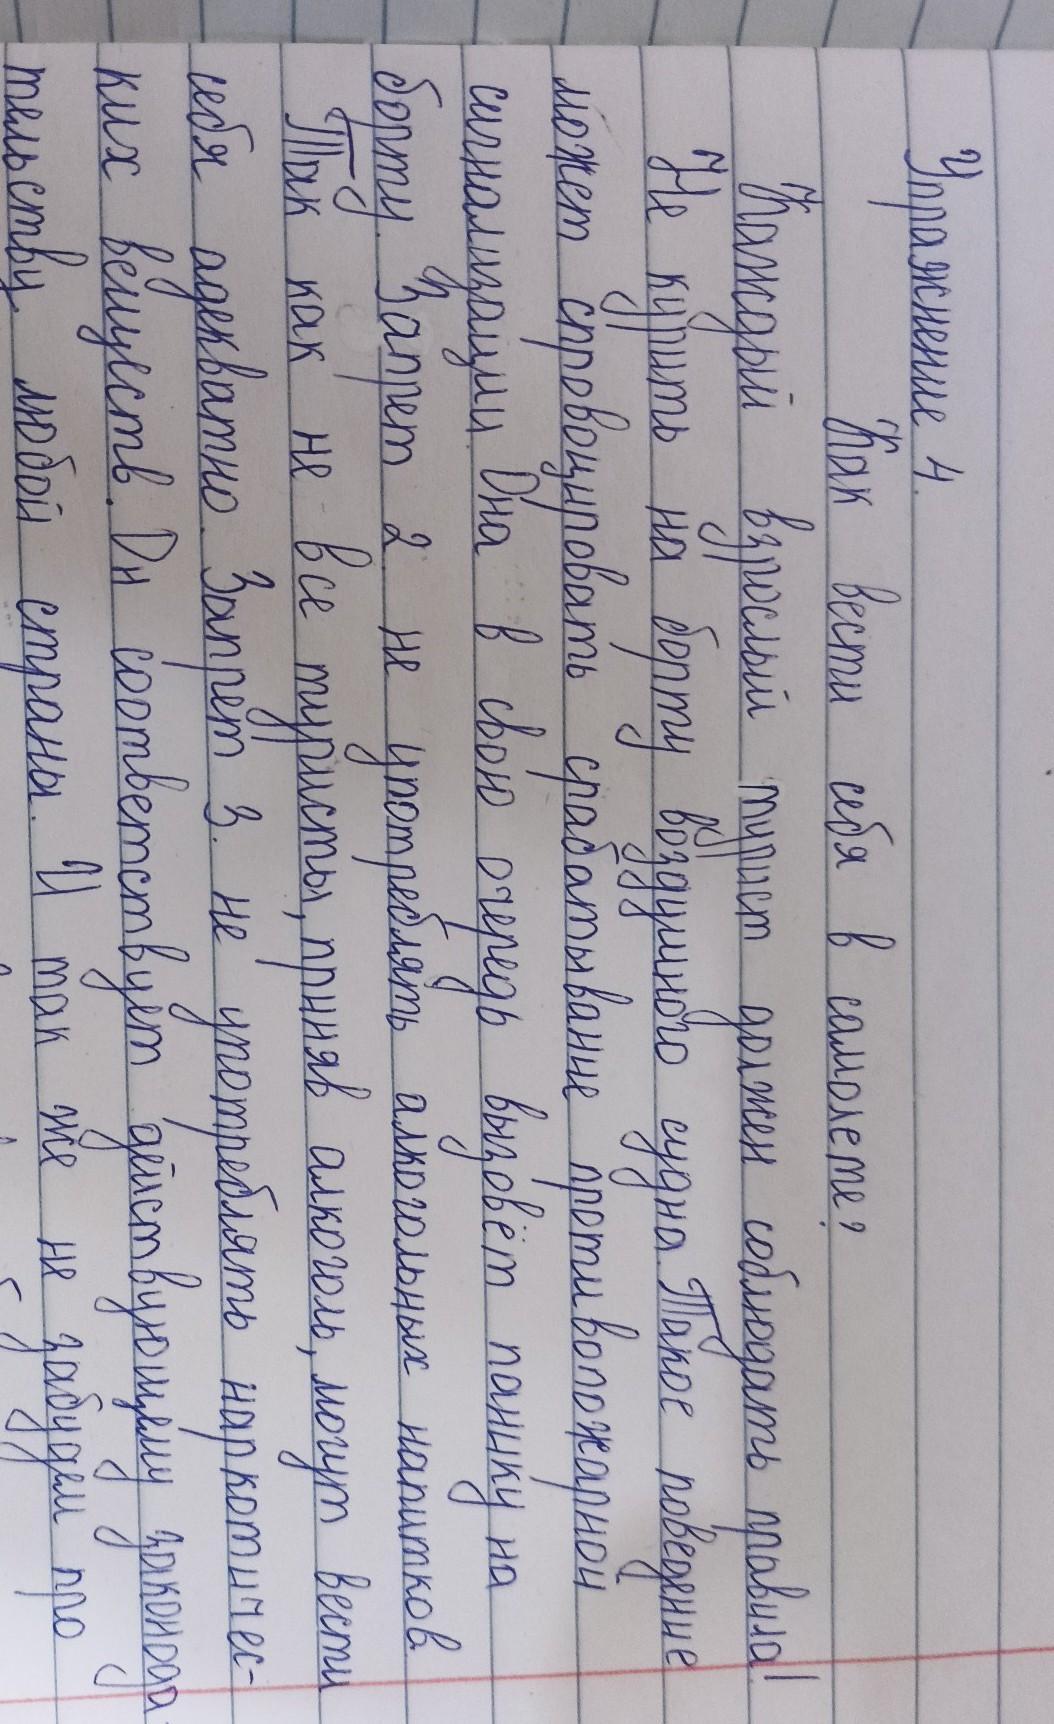 Упражнение 4.
Как вести себя в самолете?
Каждый взрослый турист должен соблюдать правила!
Не курить на борту воздушного судна. Такое поведение
может спровоцировать срабатывание противопожарной
сигнализации. Она в свою очередь вызовёт панику на
борту. Запрет 2 не употреблять алкогольных напитков.
Так как не все туристы, приняв алкоголь, могут вести
себя адекватно. Запрет 3. не употреблять наркотичес-
ких веществ. Он соответствует действующему законода
тельству любой страны. И так же не забудем про